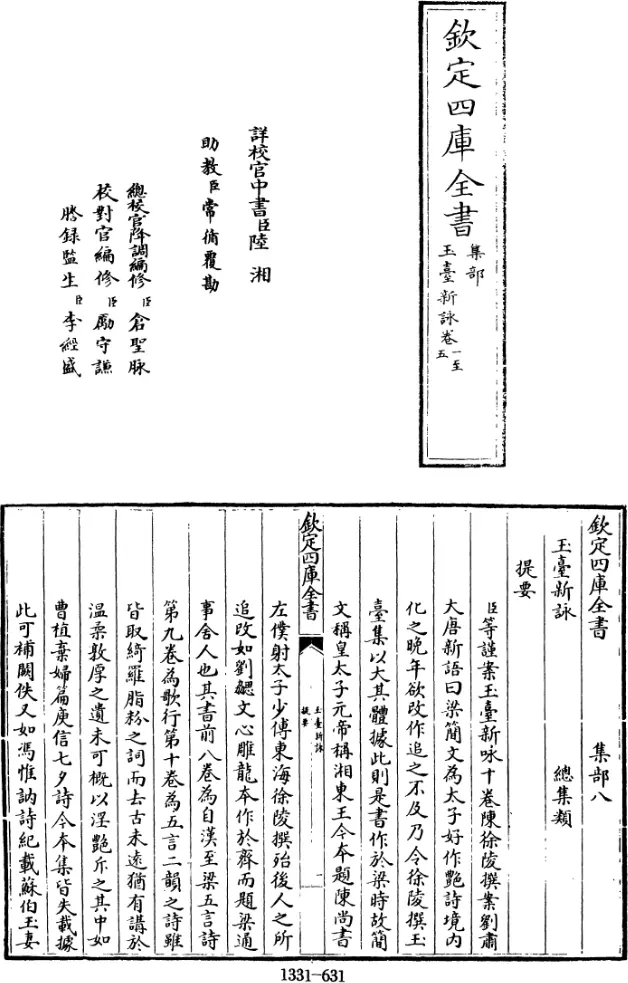 欽定四庫全書
集部
玉臺新詠卷一至五
詳校官中書臣陸湘
助教臣常循覆勘
總校官降調編修臣倉聖脉
校對官編修臣勵守謙
謄録監生臣李經盛
欽定四庫全書
集部八
玉臺新詠
總集類
提要
臣等謹案玉臺新咏十卷陳徐陵撰案劉肅
大唐新語曰梁簡文為太子好作艷詩境内
化之晩年欲改作追之不及乃令徐陵撰玉
臺集以大其體據此則是書作於梁時故簡
文稱皇太子元帝稱湘東王今本題陳尚書
欽定四庫全書
玉臺新詠
提要
一
左僕射太子少傅東海徐陵撰殆後人之所
追改如劉勰文心雕龍本作於齊而題梁通
事舍人也其書前八卷為自漢至梁五言詩
第九卷為歌行第十卷為五言二韻之詩雖
皆取綺羅脂粉之詞而去古未逺猶有講於
溫柔敦厚之遺未可概以淫艷斥之其中如
曹植棄婦篇庾信七夕詩今本集皆失載據
此可補闕佚又如馮惟訥詩紀載蘇伯玉妻
1331-631